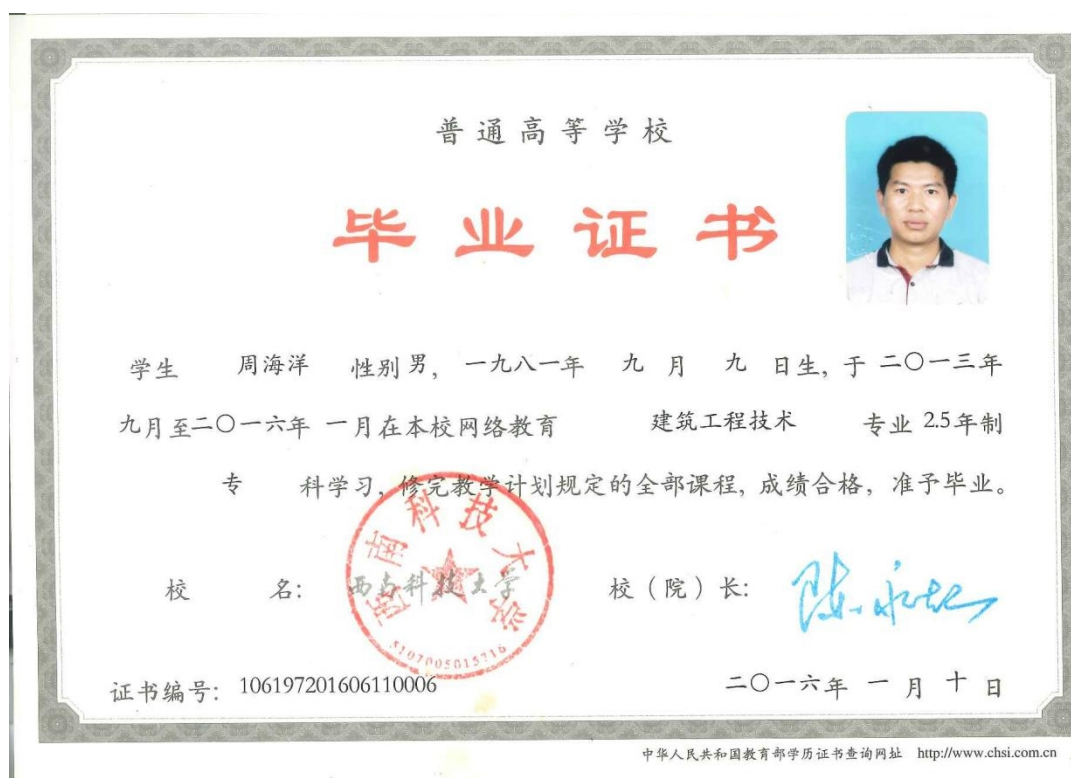 普通高等学校
毕业证书
学生 周海洋 性别 男, 一九八一年 九 月 九 日生, 于 二〇一三年
九月至二〇一六年 一月在本校网络教育 建筑工程技术 专业 2.5年制
专 科学习, 修完教学计划规定的全部课程, 成绩合格, 准予毕业。
校 名: 西南科技大学 校(院)长:
西南科技大学
5107005015716
证书编号: 106197201606110006 二〇一六年 一 月 十 日
中华人民共和国教育部学历证书查询网址 http://www.chsi.com.cn